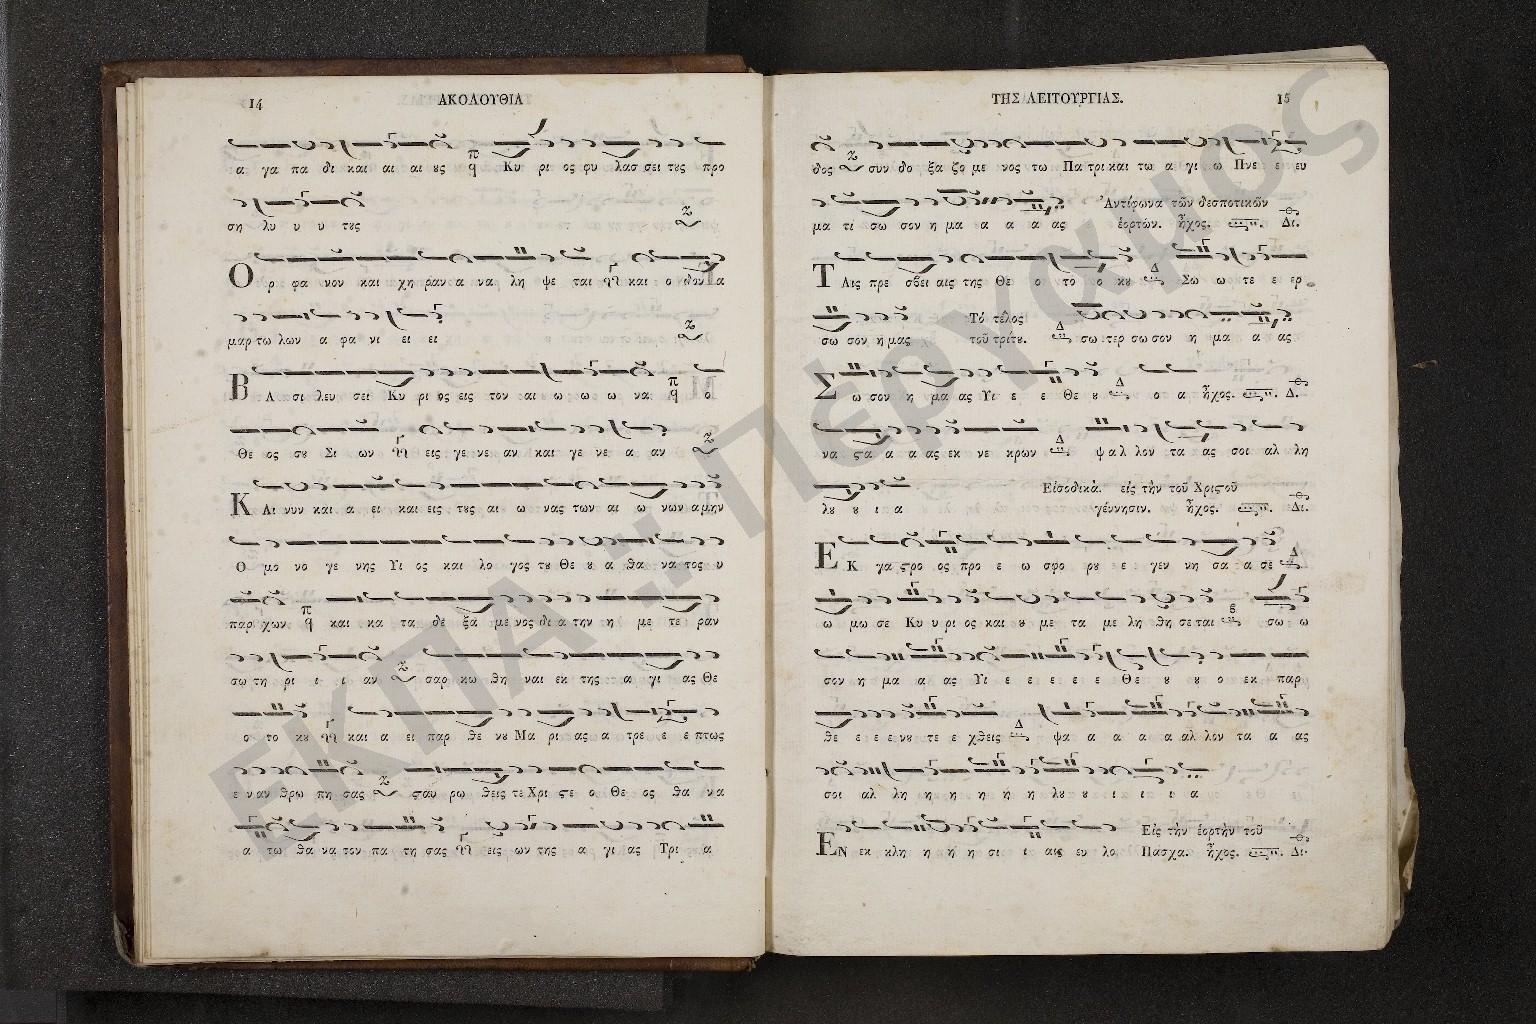 14
ΑΚΟΛΟΥΘΙΑ
α γα πα δι και αι αι ȣς Κυ ρι ος φυ λασ σει τȣς προ
ση λυ υ υ τȣς
Ο ρ φα νον και χη ραν α να λη ψε ται και ο δον α
μαρ τω λων α φα νι ει ει
Β Α σι λευ σει Κυ ρι ος εις τον αι ω ω ω να ο
Θε ος σȣ Σι ων εις γε νε αν και γε νε α αν
Κ Αι νυν και α ει και εις τȣς αι ω νας των αι ω νων αμην
Ο μο νο γε νης Υι ος και λο γος τȣ Θε ȣ α θα να τος υ
παρ χων και κα τα δε ξα με νος δι α την η με τε ραν
σω τη ρι ι ι αν σαρ κω θη ναι εκ της α γι ας Θε
ο το κȣ και α ει παρ θε νȣ Μα ρι ας α τρε ε ε πτως
ε ναν θρω πη σας σταυ ρω θεις τε Χρι στε ο Θε ος θα να
α τω θα να τον πα τη σας εις ων της α γι ας Τρι α
ΤΗΣ ΛΕΙΤΟΥΡΓΙΑΣ.
15
δος συν δο ξα ζο με νος τω Πα τρι και τω α γι ω Πνε ε ευ
μα τι σω σον η μα α α α ας
Ἀντίφωνα τῶν δεσποτικῶν
ἑορτῶν. ἦχος. Δι.
Τ Αις πρε σβει αις της Θε ο το ο κȣ Σω ω τε ε ερ
σω σον η μας
Τὸ τέλος
τοῦ τρίτȣ.
σω τερ σω σον η μα α ας
Σ ω σον η μα ας Υι ε ε Θε ȣ ο α ἦχος. Δ.
να στα α α ας εκ νε κρων ψαλ λον τα ας σοι αλ λη
λȣ ȣ ι α
Εἰσοδικὰ. εἰς τὴν τοῦ Χριστοῦ
γέννησιν. ἦχος. Δι.
Ε Κ γα στρο ος προ ε ω σφο ρȣ ε γεν νη σα α σε
ω μω σε Κυ υ ρι ος και ȣ με τα με λη θη σε ται σω ω
σον η μα α ας Υι ε ε ε ε ε Θε ȣ ȣ ο εκ παρ
θε ε ε ε νȣ τε ε χθεις ψα α α α α αλ λον τα α ας
σοι αλ λη η η η η η λȣ ȣ ι ι ι α
ΕΝ εκ κλη η η η σι ι αις ευ λο
Εἰς τὴν ἑορτὴν τοῦ
Πάσχα. ἦχος. Δι.
ΕΚΠΑ :: Πέργαμος